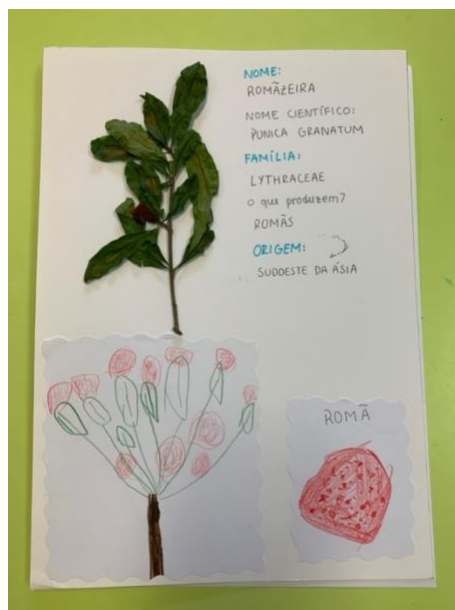 NOME:
ROMÃZEIRA
NOME CIENTÍFICO:
PUNICA GRANATUM
FAMÍLIA:
LYTHRACEAE
o que produzem?
ROMÃS
ORIGEM:
SUDOESTE DA ÁSIA
ROMÃ